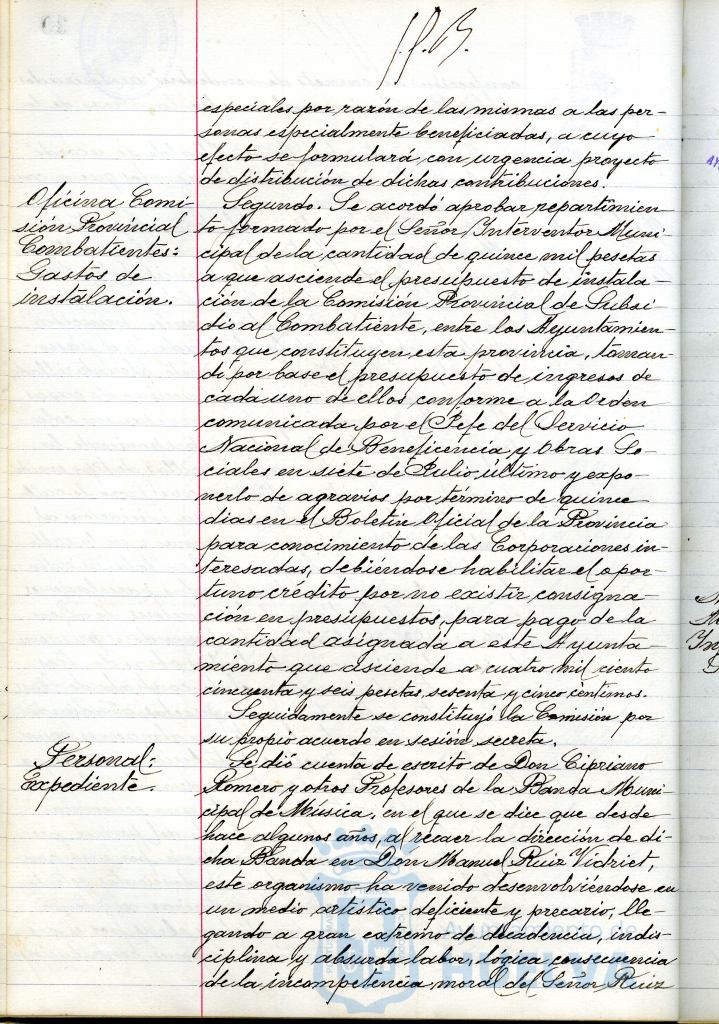 especiales por razón de las mismas a las per-
sonas especialmente beneficiadas, a cuyo
efecto se formulará con urgencia proyecto
de distribución de dichas contribuciones.
Oficina Comi-
sión Provincial
Combatientes:
Gastos de
instalación.
Segundo. Se acordó aprobar repartimien-
to formado por el Señor Interventor Muni-
cipal de la cantidad de quince mil pesetas
a que asciende el presupuesto de instala-
ción de la Comisión Provincial de Subsi-
dio al Combatiente, entre los Ayuntamien-
tos que constituyen esta provincia, toman-
do por base el presupuesto de ingresos de
cada uno de ellos, conforme a la Orden
comunicada por el Jefe del Servicio
Nacional de Beneficencia y Obras So-
ciales en siete de Julio último y expo-
nerlo de agravios por término de quince
dias en el Boletín Oficial de la Provincia
para conocimiento de las Corporaciones in-
teresadas, debiéndose habilitar el opor-
tuno crédito por no existir consigna-
ción en presupuestos, para pago de la
cantidad asignada a este Ayunta-
miento que asciende a cuatro mil ciento
cincuenta y seis pesetas, sesenta y cinco céntimos.
Seguidamente se constituyó la Comisión por
su propio acuerdo en sesión secreta.
Personal:
Expediente.
Se dió cuenta de escrito de Don Cipriano
Romero y otros Profesores de la Banda Muni-
cipal de Música, en el que se dice que desde
hace algunos años, al recaer la dirección de di-
cha Banda en Don Manuel Ruiz Vidriet,
este organismo ha venido desenvolviéndose en
un medio artístico deficiente y precario, lle-
gando a gran extremo de decadencia, indis-
ciplina y absurda labor, lógica consecuencia
de la incompetencia moral del Señor Ruiz